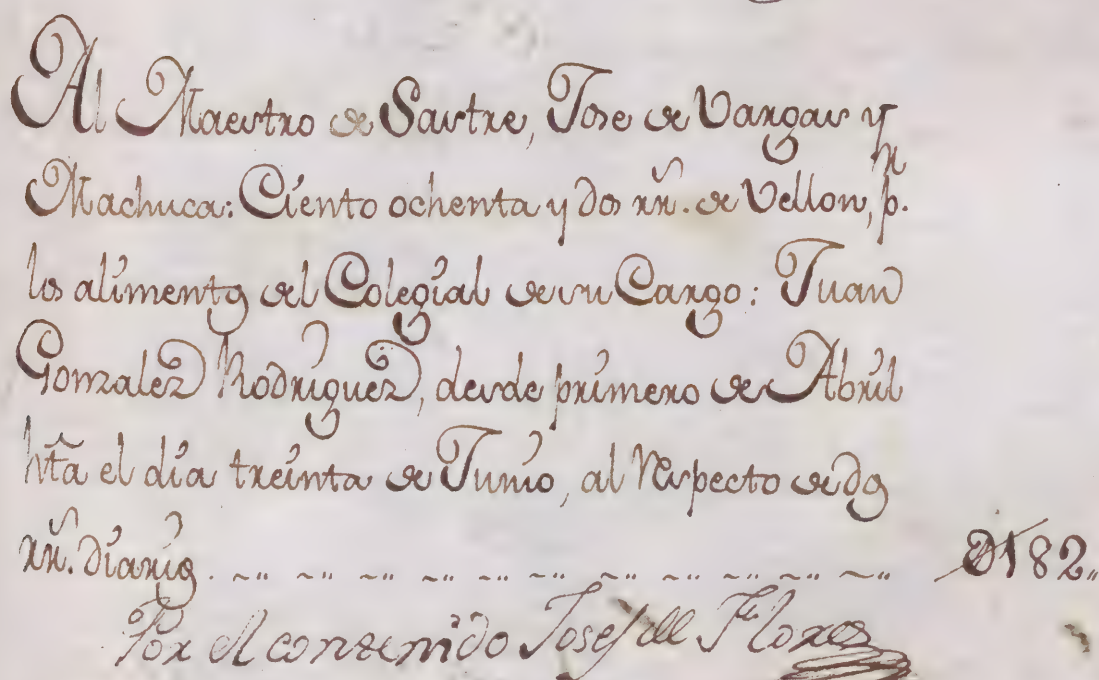 Al Maestro de Sastre, Jose de Vargas y
Machuca: Ciento ochenta y dos rr.ˢ de Vellon, p.ʳ
los alimentos del Colegial de su Cargo: Juan
Gonzalez Rodriguez, desde primero de Abril
hsta el dia treinta de Junio, al Respecto de dos
rr.ˢ diarios. 182
Por el contenido Josef de Flores